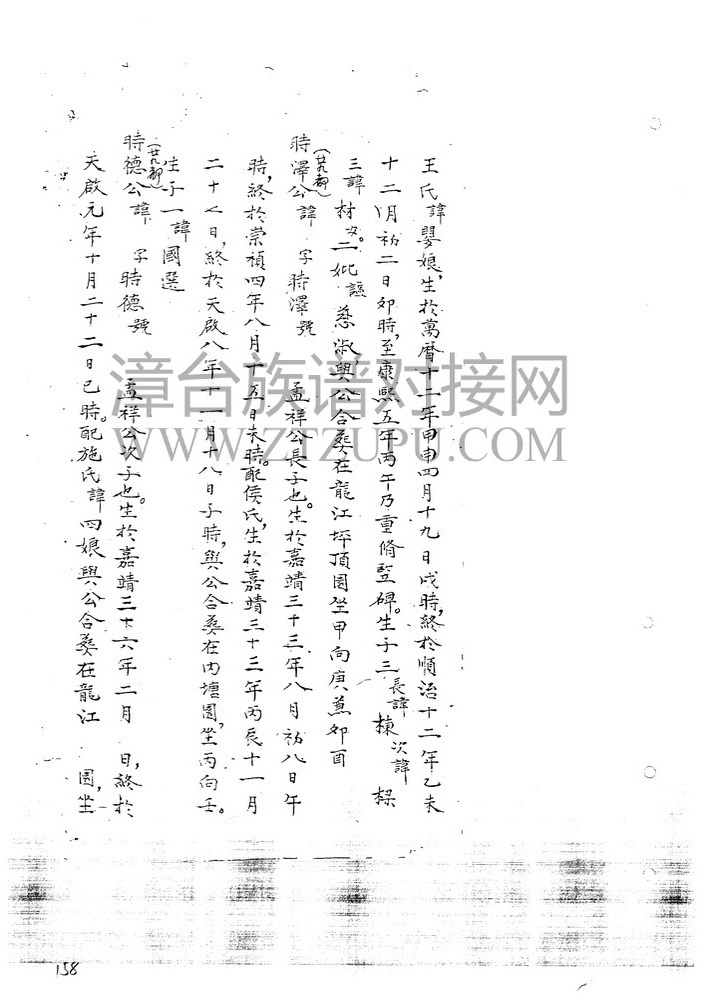 王氏諱嬰娘,生於萬曆十二年甲申四月十九日戌時,終於順治十二年乙未
十二月初二日卯時,至康熙五年丙午乃重脩豎碑。生子三 長諱 棟 次諱 樑
三諱 材 女。二妣諡 慈淑,與公合葬在龍江坪頂園坐甲向庚兼卯酉
時澤公諱 字時澤號 孟祥公長子也。生於嘉靖三十三年八月初八日午
時,終於崇禎四年八月十五日未時。配侯氏,生於嘉靖三十三年丙辰十一月
二十七日,終於天啟八年十一月十八日子時,與公合葬在內塘園,坐丙向壬。
生子一 諱國選
時德公諱 字時德號 孟祥公次子也。生於嘉靖三十六年二月 日,終於
天啟元年十月二十二日巳時。配施氏諱四娘與公合葬在龍江 園,坐
漳台族谱对接网
WWW.ZTZUPU.COM
158